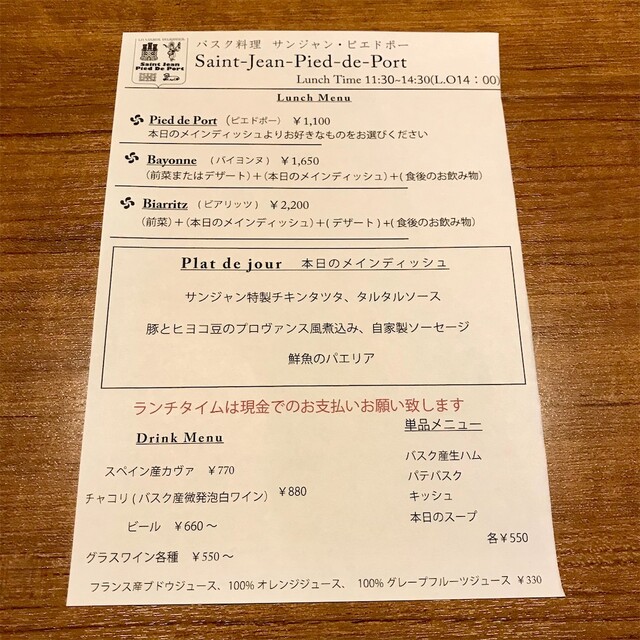 Saint Jean
Pied De Port
バスク料理 サンジャン・ピエドポー
Saint-Jean-Pied-de-Port
Lunch Time 11:30~14:30(L.O14：00)
Lunch Menu
Pied de Port（ピエドポー） ¥1,100
本日のメインディッシュよりお好きなものをお選びください
Bayonne （バイヨンヌ） ¥1,650
（前菜またはデザート）＋（本日のメインディッシュ）＋（食後のお飲み物）
Biarritz （ビアリッツ） ¥2,200
（前菜）＋（本日のメインディッシュ）＋（デザート）＋（食後のお飲み物）
Plat de jour 本日のメインディッシュ
サンジャン特製チキンタツタ、タルタルソース
豚とヒヨコ豆のプロヴァンス風煮込み、自家製ソーセージ
鮮魚のパエリア
ランチタイムは現金でのお支払いお願い致します
Drink Menu
スペイン産カヴァ ¥770
チャコリ（バスク産微発泡白ワイン） ¥880
ビール ¥660～
グラスワイン各種 ¥550～
単品メニュー
バスク産生ハム
パテバスク
キッシュ
本日のスープ
各¥550
フランス産ブドウジュース、100%オレンジジュース、 100%グレープフルーツジュース ¥330